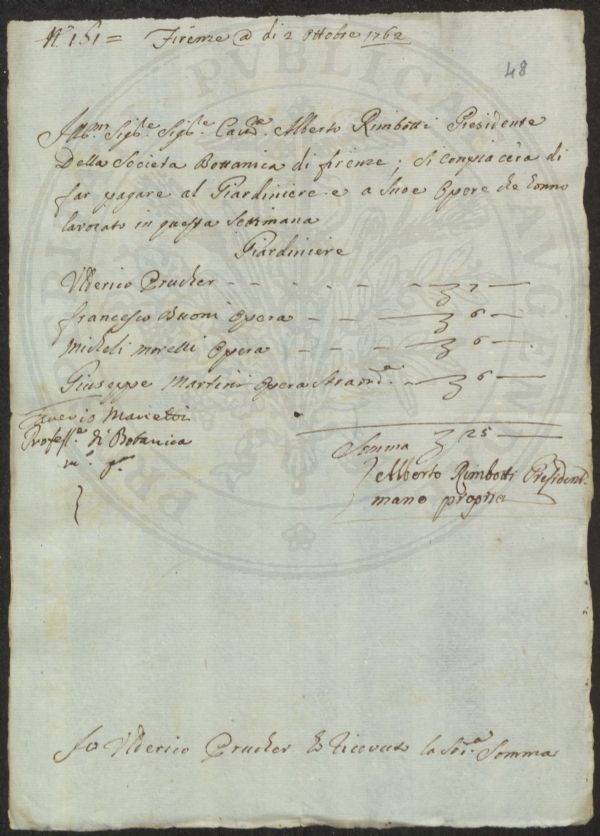 N.° 151 = Firenze @ di 2 Ottobre 1762
48
Ill.mo Sig.re Sig.re Cav.re Alberto Rimbotti Presidente
Della Societa Bottanica di firenze. Si Conpiacera di
far pagare al Giardiniere e a Sue Opere che Lonno
lavorato in questa Settimana
Giardiniere
Ulderico Prucker - - - - - 7 -
francesco Buoni Opera - - - 6 -
Micheli Morelli Opera - - - 6 -
Giuseppe Martini Opera Straord.a - 6 -
Saverio Manetti
Profess.e di Botanica
m.o p.a
Somma 25 -
Alberto Rimbotti President
mano propria
Io Ulderico Prucker ho Ricevuto la Sod.a Somma